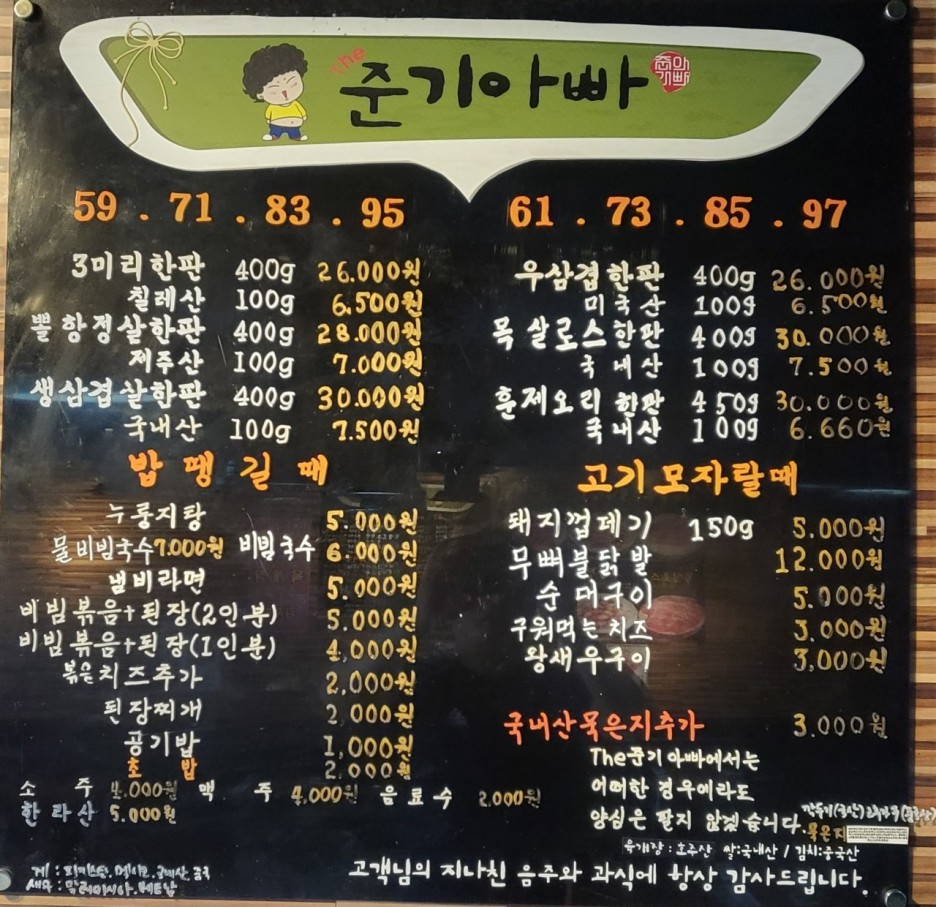 The 준기아빠
59 . 71 . 83 . 95
3미리한판 400g 26.000원
칠레산 100g 6.500원
뽈항정살한판 400g 28.000원
제주산 100g 7.000원
생삼겹살한판 400g 30.000원
국내산 100g 7.500원
밥땡길때
누룽지탕 5.000원
물비빔국수7.000원 비빔국수 6.000원
냄비라면 5.000원
비빔볶음+된장(2인분) 5.000원
비빔볶음+된장(1인분) 4,000원
볶음치즈추가 2,000원
된장찌개 2,000원
공기밥 1,000원
초밥 2.000원
소주 4,000원 맥주 4,000원 음료수 2.000원
한라산 5.000원
61 . 73 . 85 . 97
우삼겹한판 400g 26.000원
미국산 100g 6.500원
목살로스한판 400g 30.000원
국내산 100g 7.500원
훈제오리한판 450g 30.000원
국내산 100g 6.660원
고기모자랄때
돼지껍데기 150g 5.000원
무뼈불닭발 12.000원
순대구이 5.000원
구워먹는치즈 3.000원
왕새우구이 3,000원
국내산묵은지추가 3.000원
The준기아빠에서는
어떠한 경우이라도
양심은 팔지 않겠습니다.
묵은지
육개장 : 호주산 쌀:국내산 / 김치:중국산
고객님의 지나친 음주와 과식에 항상 감사드립니다.